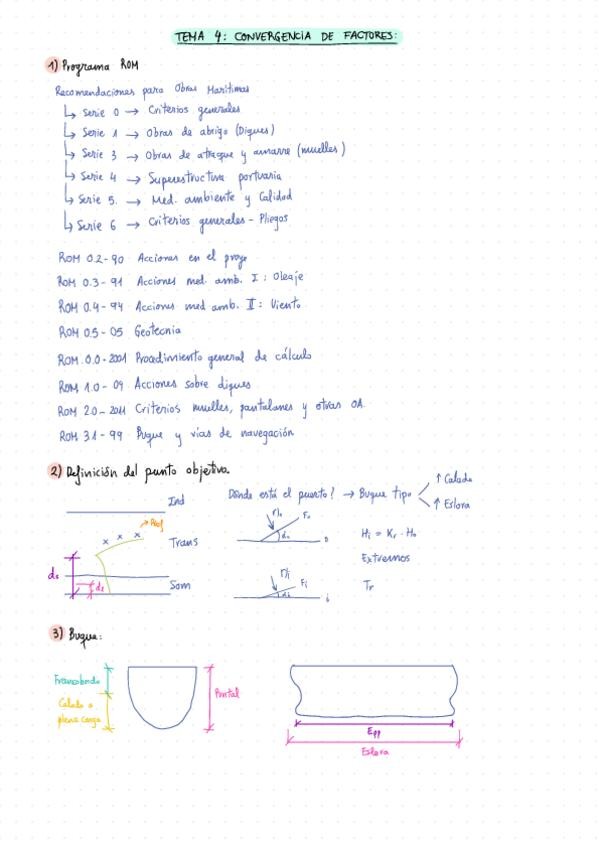 TEMA 4: CONVERGENCIA DE FACTORES:
1) Programa ROM
Recomendaciones para Obras Marítimas
↳ Serie 0 → Criterios generales
↳ Serie 1 → Obras de abrigo (Diques)
↳ Serie 3 → Obras de atraque y amarre (muelles)
↳ Serie 4 → Superestructura portuaria
↳ Serie 5. → Med. ambiente y Calidad
↳ Serie 6 → Criterios generales - Pliegos
ROM 0.2-90 Acciones en el proye
ROM 0.3-91 Acciones med. amb. I: Oleaje
ROM 0.4-94 Acciones med amb. II: Viento
ROM 0.5-05 Geotecnia
ROM.0.0-2001 Procedimiento general de cálculo
ROM 1.0-09 Acciones sobre diques
ROM 2.0-2011 Criterios muelles, pantalanes y otras OA.
ROM 3.1-99 Buque y vías de navegación
2) Definición del punto objetivo.
Ind
Trans
Som
ds
Dónde está el puerto? → Buque tipo
↑ Calado
↑ Eslora
Hi = Kr · Ho
Extremos
Tr
3) Buque:
Francobordo
Calado a
plena carga
Puntal
Epp
Eslora